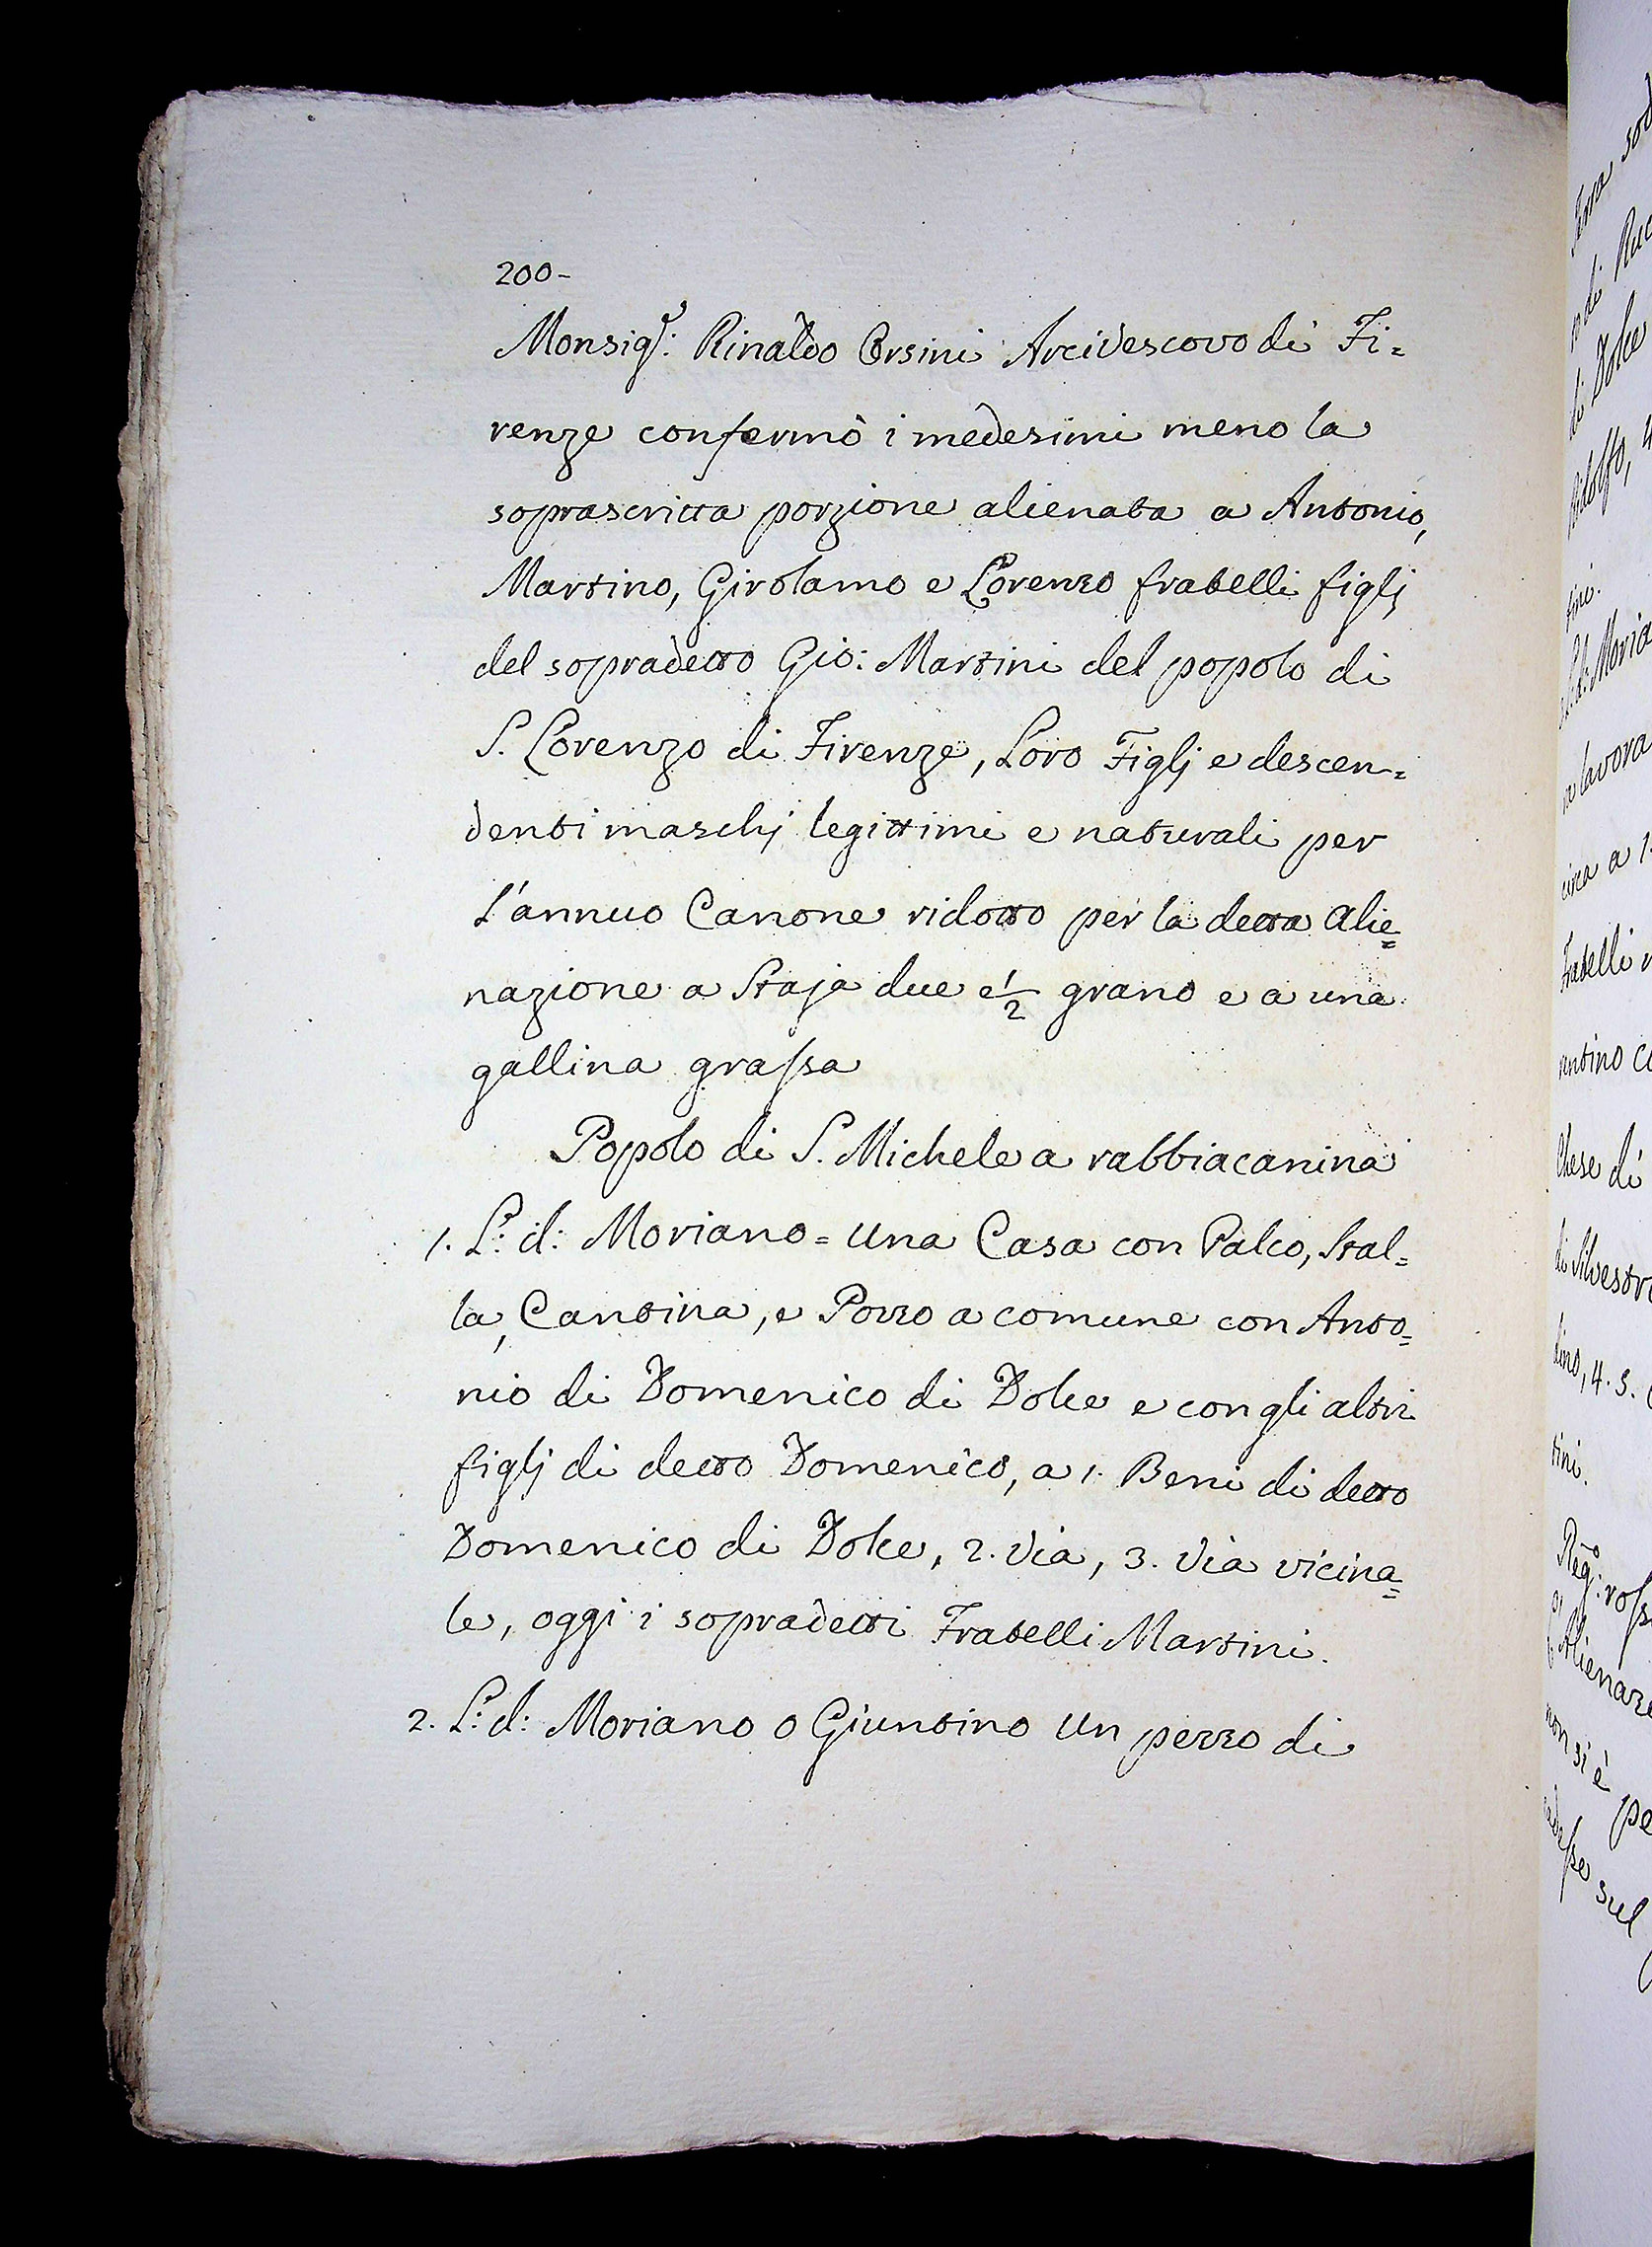 200-
Monsig.r: Rinaldo Orsini Arcivescovo di Fi=
renze confermò i medesimi meno la
soprascritta porzione alienata a Antonio,
Martino, Girolamo e Lorenzo fratelli figlj
del sopradetto Gio: Martini del popolo di
S. Lorenzo di Firenze, Loro Figlj e descen=
denti maschj legittimi e naturali per
l'annuo Canone ridotto per la detta alie=
nazione a Staja due e 1/2 grano e a una
gallina grassa
Popolo di S. Michele a rabbiacanina
1. L: d: Moriano = una Casa con Palco, Stal=
la, Cantina, e Pozzo a comune con Anto=
nio di Domenico di Dolce e con gli altri
figlj di detto Domenico, a 1. Beni di detto
Domenico di Dolce, 2. via, 3. via vicina=
le, oggi i sopradetti Fratelli Martini.
2. L: d: Moriano o Giuntino un pezzo di
di Dolce
fini.
a lavora
circa a 1.
Fratelli
di Silvestro
4. 5.
tini.
non si è pe
sul